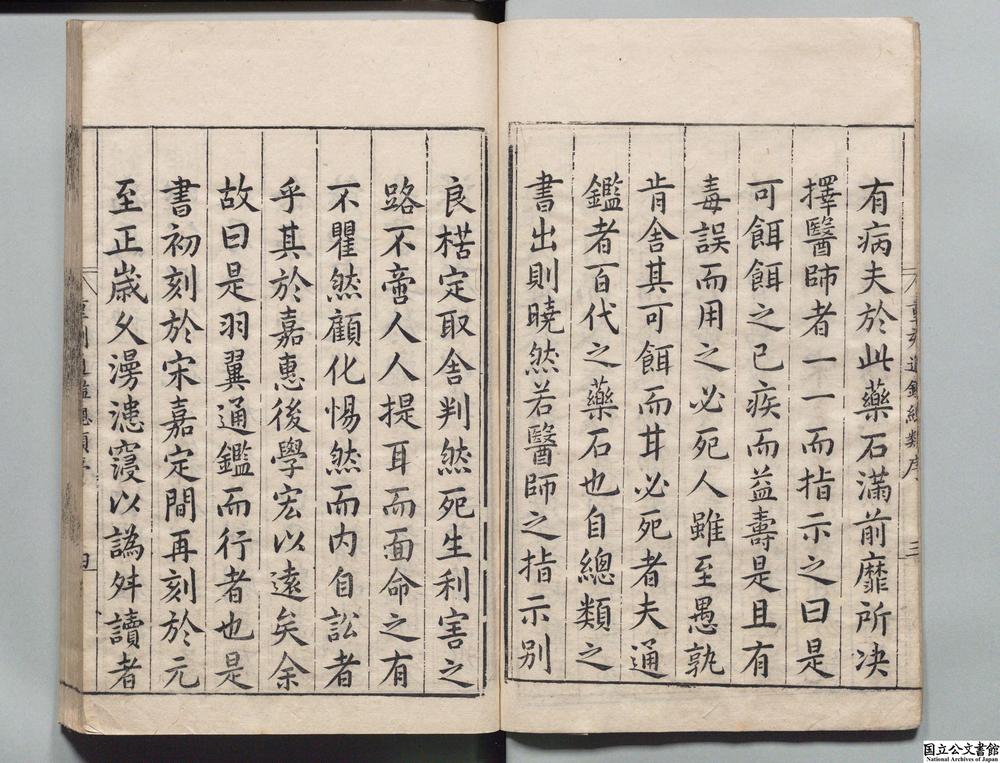 有病夫於此藥石滿前靡所决
擇醫師者一一而指示之曰是
可餌餌之已疾而益壽是且有
毒誤而用之必死人雖至愚孰
肯舍其可餌而甘必死者夫通
鑑者百代之藥石也自總類之
書出則曉然若醫師之指示別
良楛定取舍判然死生利害之
路不啻人人提耳而面命之有
不瞿然顧化惕然而内自訟者
乎其於嘉惠後學宏以遠矣余
故曰是羽翼通鑑而行者也是
書初刻於宋嘉定間再刻於元
至正歲久漫漶寖以譌舛讀者
通鑑總類序
三
四
国立公文書館
National Archives of Japan